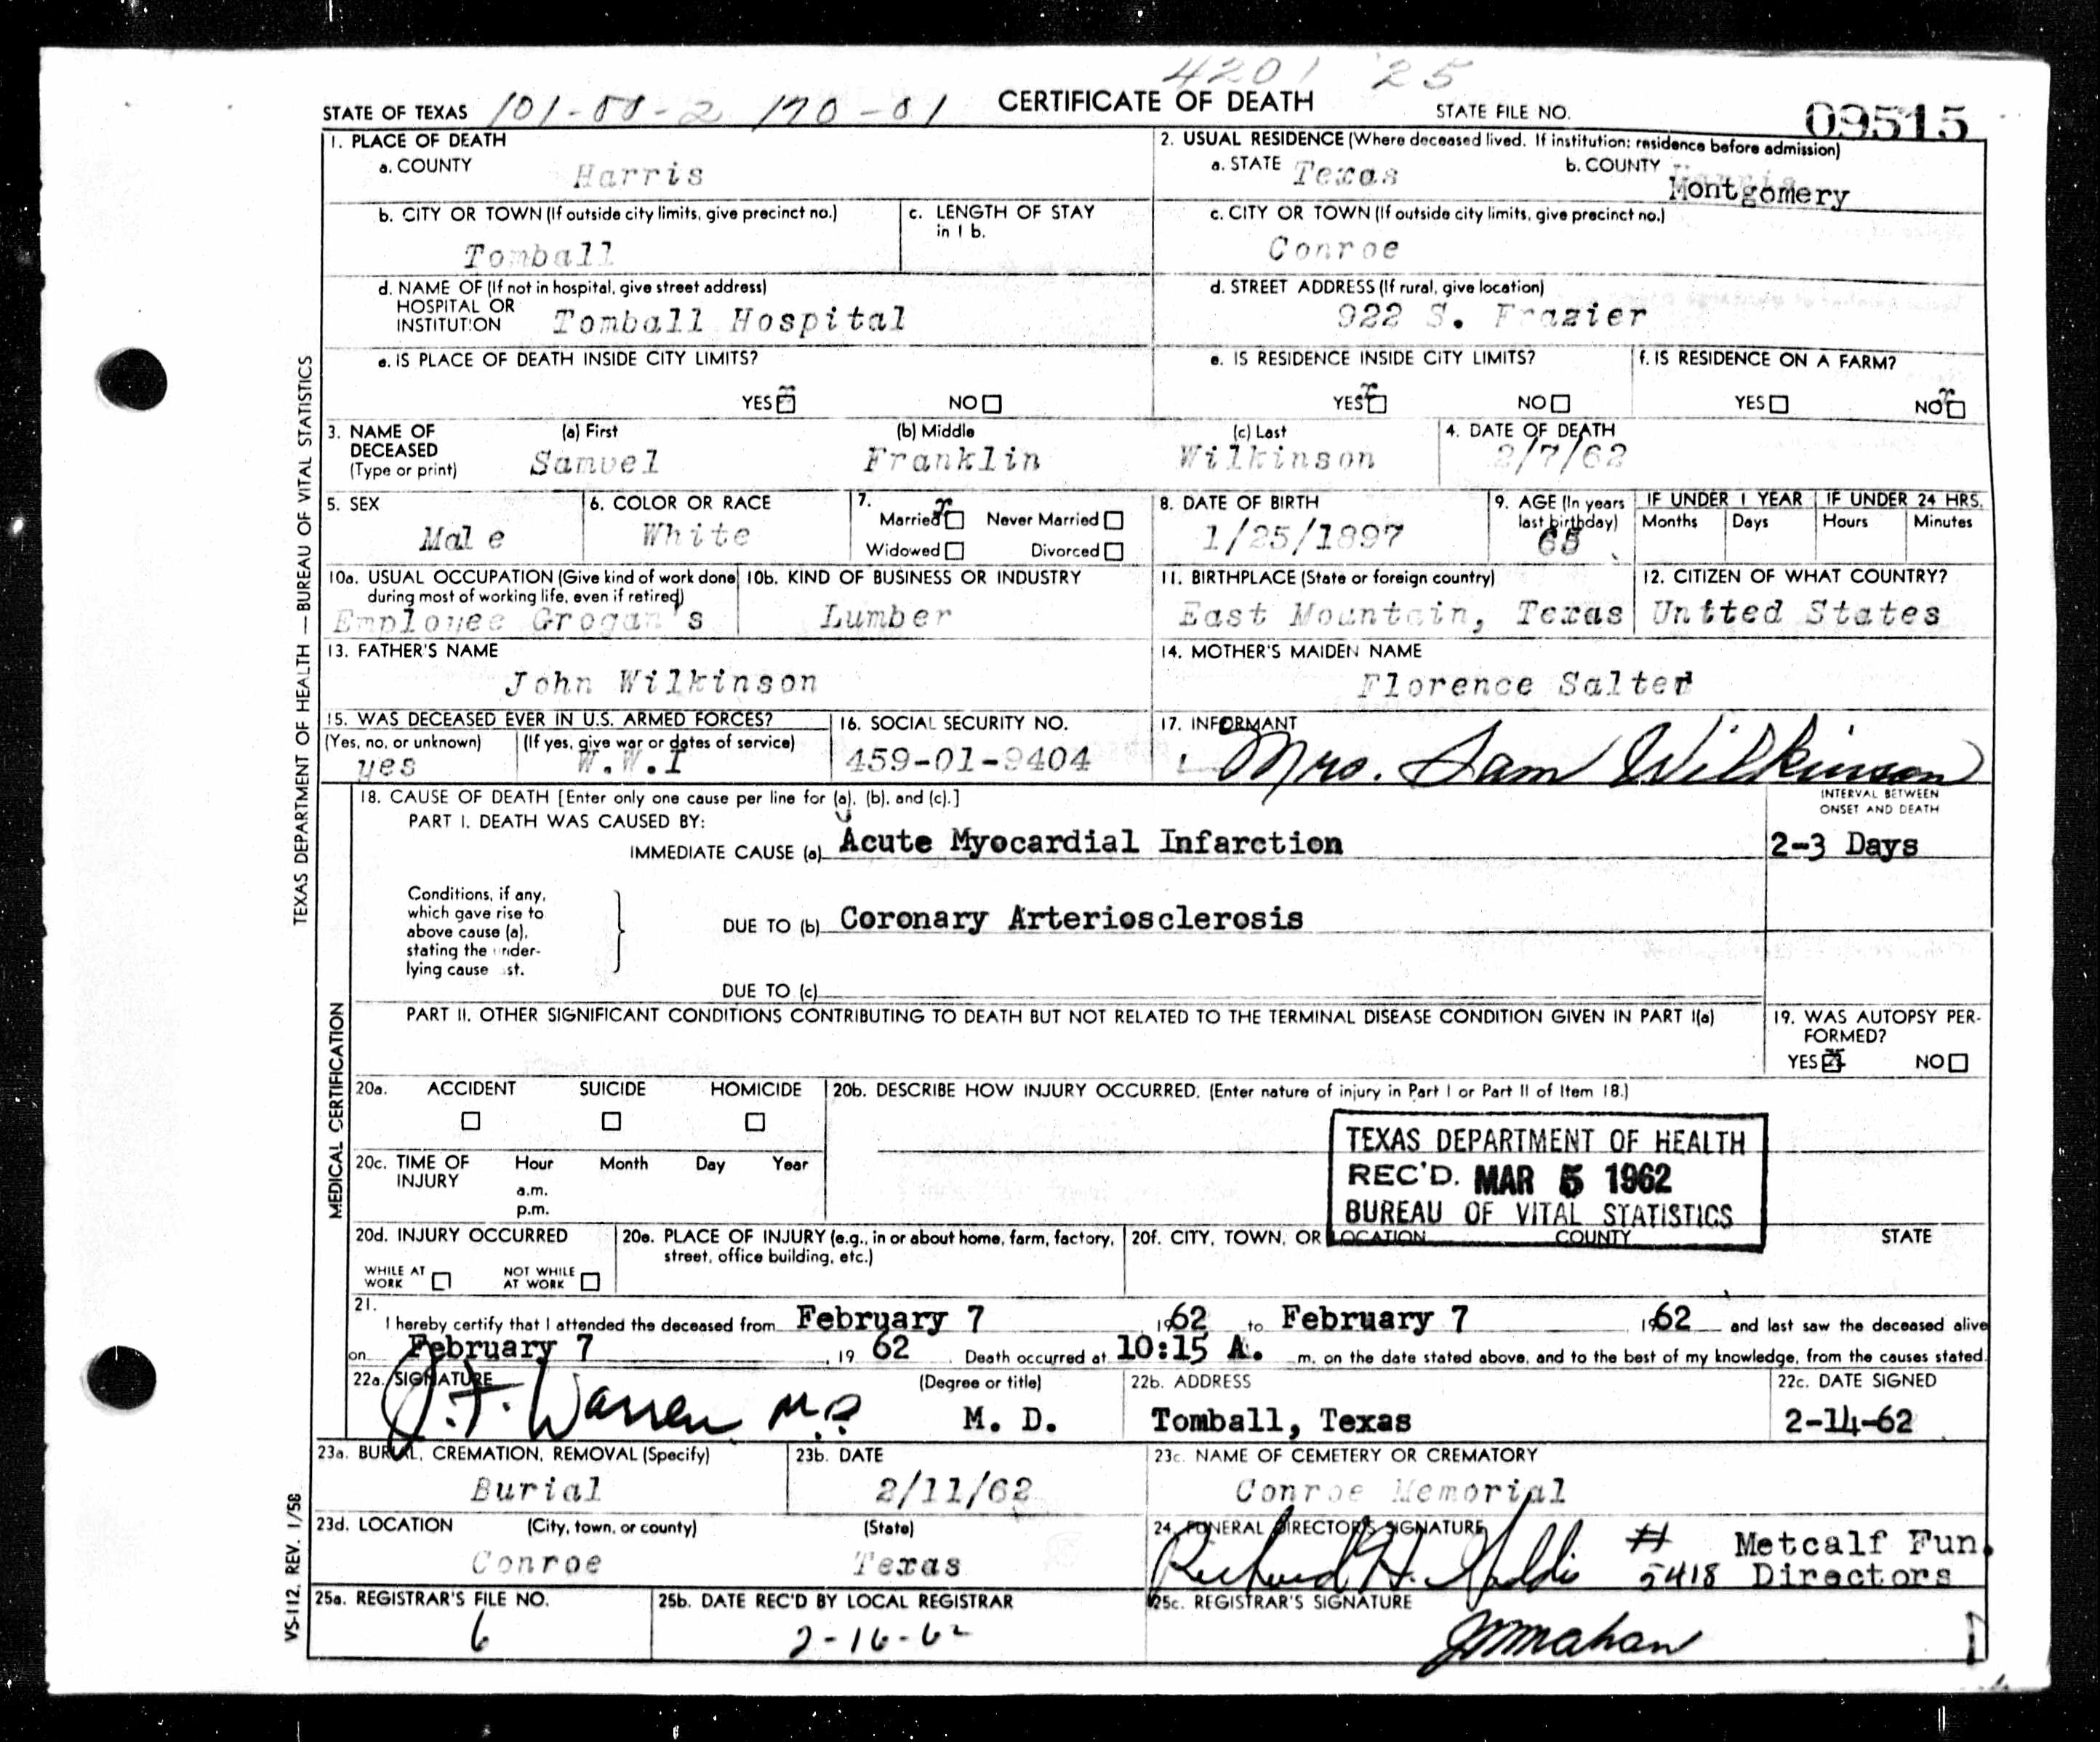 4201 25
STATE OF TEXAS 101-00-2 170-01 CERTIFICATE OF DEATH STATE FILE NO. 09515
1. PLACE OF DEATH
a. COUNTY Harris
2. USUAL RESIDENCE (Where deceased lived. If institution: residence before admission)
a. STATE Texas b. COUNTY Montgomery
b. CITY OR TOWN (If outside city limits, give precinct no.)
Tomball
c. LENGTH OF STAY
in 1 b.
c. CITY OR TOWN (If outside city limits, give precinct no.)
Conroe
d. NAME OF (If not in hospital, give street address)
HOSPITAL OR
INSTITUTION Tomball Hospital
d. STREET ADDRESS (If rural, give location)
922 S. Frazier
e. IS PLACE OF DEATH INSIDE CITY LIMITS?
YES NO
e. IS RESIDENCE INSIDE CITY LIMITS?
YES NO
f. IS RESIDENCE ON A FARM?
YES NO
3. NAME OF DECEASED
(Type or print)
(a) First (b) Middle (c) Last
Samuel Franklin Wilkinson
4. DATE OF DEATH
2/7/62
5. SEX
Male
6. COLOR OR RACE
White
7.
Married Never Married
Widowed Divorced
8. DATE OF BIRTH
1/25/1897
9. AGE (In years
last birthday)
65
IF UNDER 1 YEAR IF UNDER 24 HRS.
Months Days Hours Minutes
10a. USUAL OCCUPATION (Give kind of work done
during most of working life, even if retired)
Employee Grogan's
10b. KIND OF BUSINESS OR INDUSTRY
Lumber
11. BIRTHPLACE (State or foreign country)
East Mountain, Texas
12. CITIZEN OF WHAT COUNTRY?
United States
13. FATHER'S NAME
John Wilkinson
14. MOTHER'S MAIDEN NAME
Florence Salter
15. WAS DECEASED EVER IN U.S. ARMED FORCES?
(Yes, no, or unknown) (If yes, give war or dates of service)
yes W.W.I
16. SOCIAL SECURITY NO.
459-01-9404
17. INFORMANT
Mrs. Sam Wilkinson
18. CAUSE OF DEATH [Enter only one cause per line for (a), (b), and (c).]
INTERVAL BETWEEN
ONSET AND DEATH
PART I. DEATH WAS CAUSED BY:
IMMEDIATE CAUSE (a) Acute Myocardial Infarction 2-3 Days
Conditions, if any,
which gave rise to
above cause (a),
stating the under-
lying cause st.
DUE TO (b) Coronary Arteriosclerosis
DUE TO (c)
PART II. OTHER SIGNIFICANT CONDITIONS CONTRIBUTING TO DEATH BUT NOT RELATED TO THE TERMINAL DISEASE CONDITION GIVEN IN PART I(a)
19. WAS AUTOPSY PER-
FORMED?
YES NO
20a. ACCIDENT SUICIDE HOMICIDE
20b. DESCRIBE HOW INJURY OCCURRED. (Enter nature of injury in Part I or Part II of Item 18.)
20c. TIME OF
INJURY
Hour Month Day Year
a.m.
p.m.
TEXAS DEPARTMENT OF HEALTH
REC'D. MAR 5 1962
BUREAU OF VITAL STATISTICS
20d. INJURY OCCURRED
WHILE AT
WORK
NOT WHILE
AT WORK
20e. PLACE OF INJURY (e.g., in or about home, farm, factory,
street, office building, etc.)
20f. CITY, TOWN, OR LOCATION COUNTY STATE
21.
I hereby certify that I attended the deceased from February 7 1962 to February 7 1962 and last saw the deceased alive
on February 7, 19 62. Death occurred at 10:15 A. m. on the date stated above, and to the best of my knowledge, from the causes stated.
22a. SIGNATURE (Degree or title)
J. F. Warren M.D. M. D.
22b. ADDRESS
Tomball, Texas
22c. DATE SIGNED
2-14-62
23a. BURIAL, CREMATION, REMOVAL (Specify)
Burial
23b. DATE
2/11/62
23c. NAME OF CEMETERY OR CREMATORY
Conroe Memorial
23d. LOCATION (City, town, or county) (State)
Conroe Texas
24. FUNERAL DIRECTOR'S SIGNATURE
Richard H. # 5418 Metcalf Fun.
Directors
25a. REGISTRAR'S FILE NO.
6
25b. DATE REC'D BY LOCAL REGISTRAR
2-16-62
25c. REGISTRAR'S SIGNATURE
TEXAS DEPARTMENT OF HEALTH — BUREAU OF VITAL STATISTICS
MEDICAL CERTIFICATION
VS-112, REV. 1/58